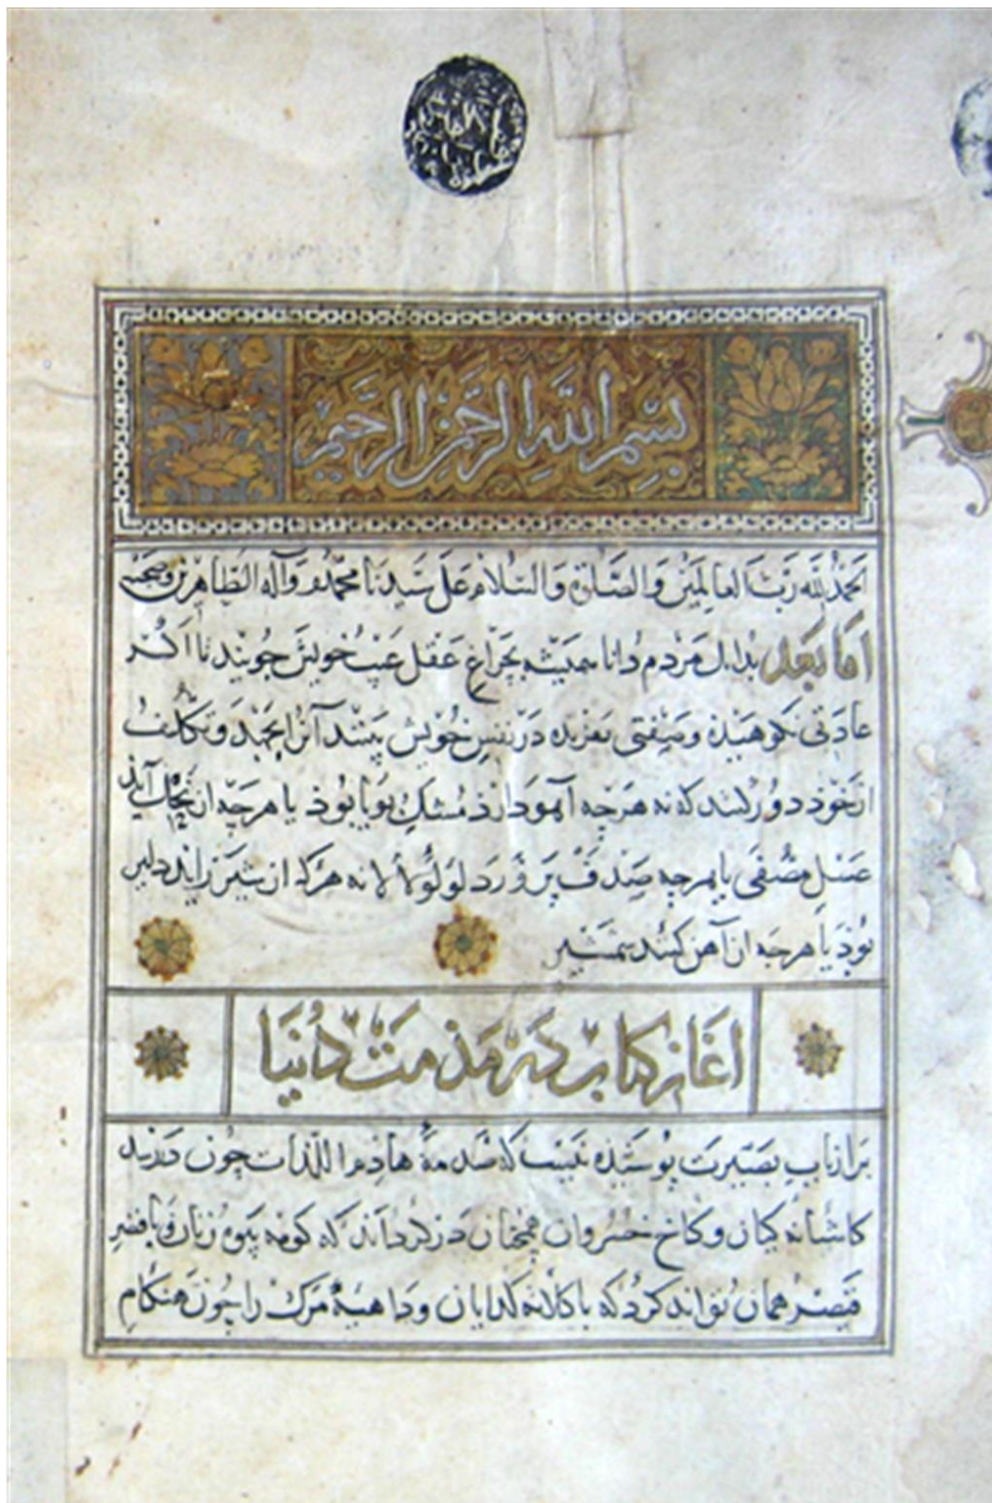 بسم الله الرحمن الرحيم
الحمد لله رب العالمين والصلوة والسلام على سيدنا محمد وآله الطاهرين وصحبه
اما بعد بدانك مردم دانا هميشه بچراغ عقل عيب خويش جويند تا اكر
عادتى نكوهيذه وصفتى در نفس خويش بينند آنرا بجهد وتكلف
از خوذ دور كنند كه نه هرچه آهو دارذ مشك بويا بوذ يا هرچه از نحل آيذ
عسل مصفى يا هرچه صدف پرورد لولو لالا نه هركه از شير زايد دلير
بوذ يا هرچه از آهن كنند شمشير
اغاز كتاب در مذمت دنيا
بر ارباب بصيرت پوشيذه نيست كه صدمهٔ هاذم اللذات چون در رسد
كاشانه كيان وكاخ خسروان همچنان در كرداند كه كومه پيره زنان وبا قصر
قيصر همان تواند كرد كه با كلاته كدايان وداهيهٔ مرك را چون هنكام